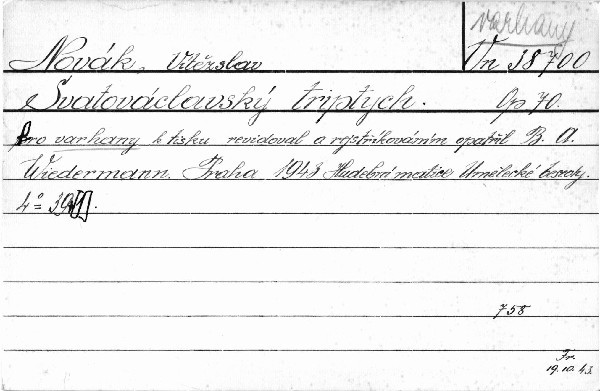 varhany
Novák, Vítězslav Vn 38700
Svatováclavský triptych. Op. 70.
Pro varhany k tisku revidoval a rejstříkováním opatřil B. A.
Wiedermann. Praha 1943 Hudební matice Umělecké besedy.
4°
758
Fr.
19.10.43.